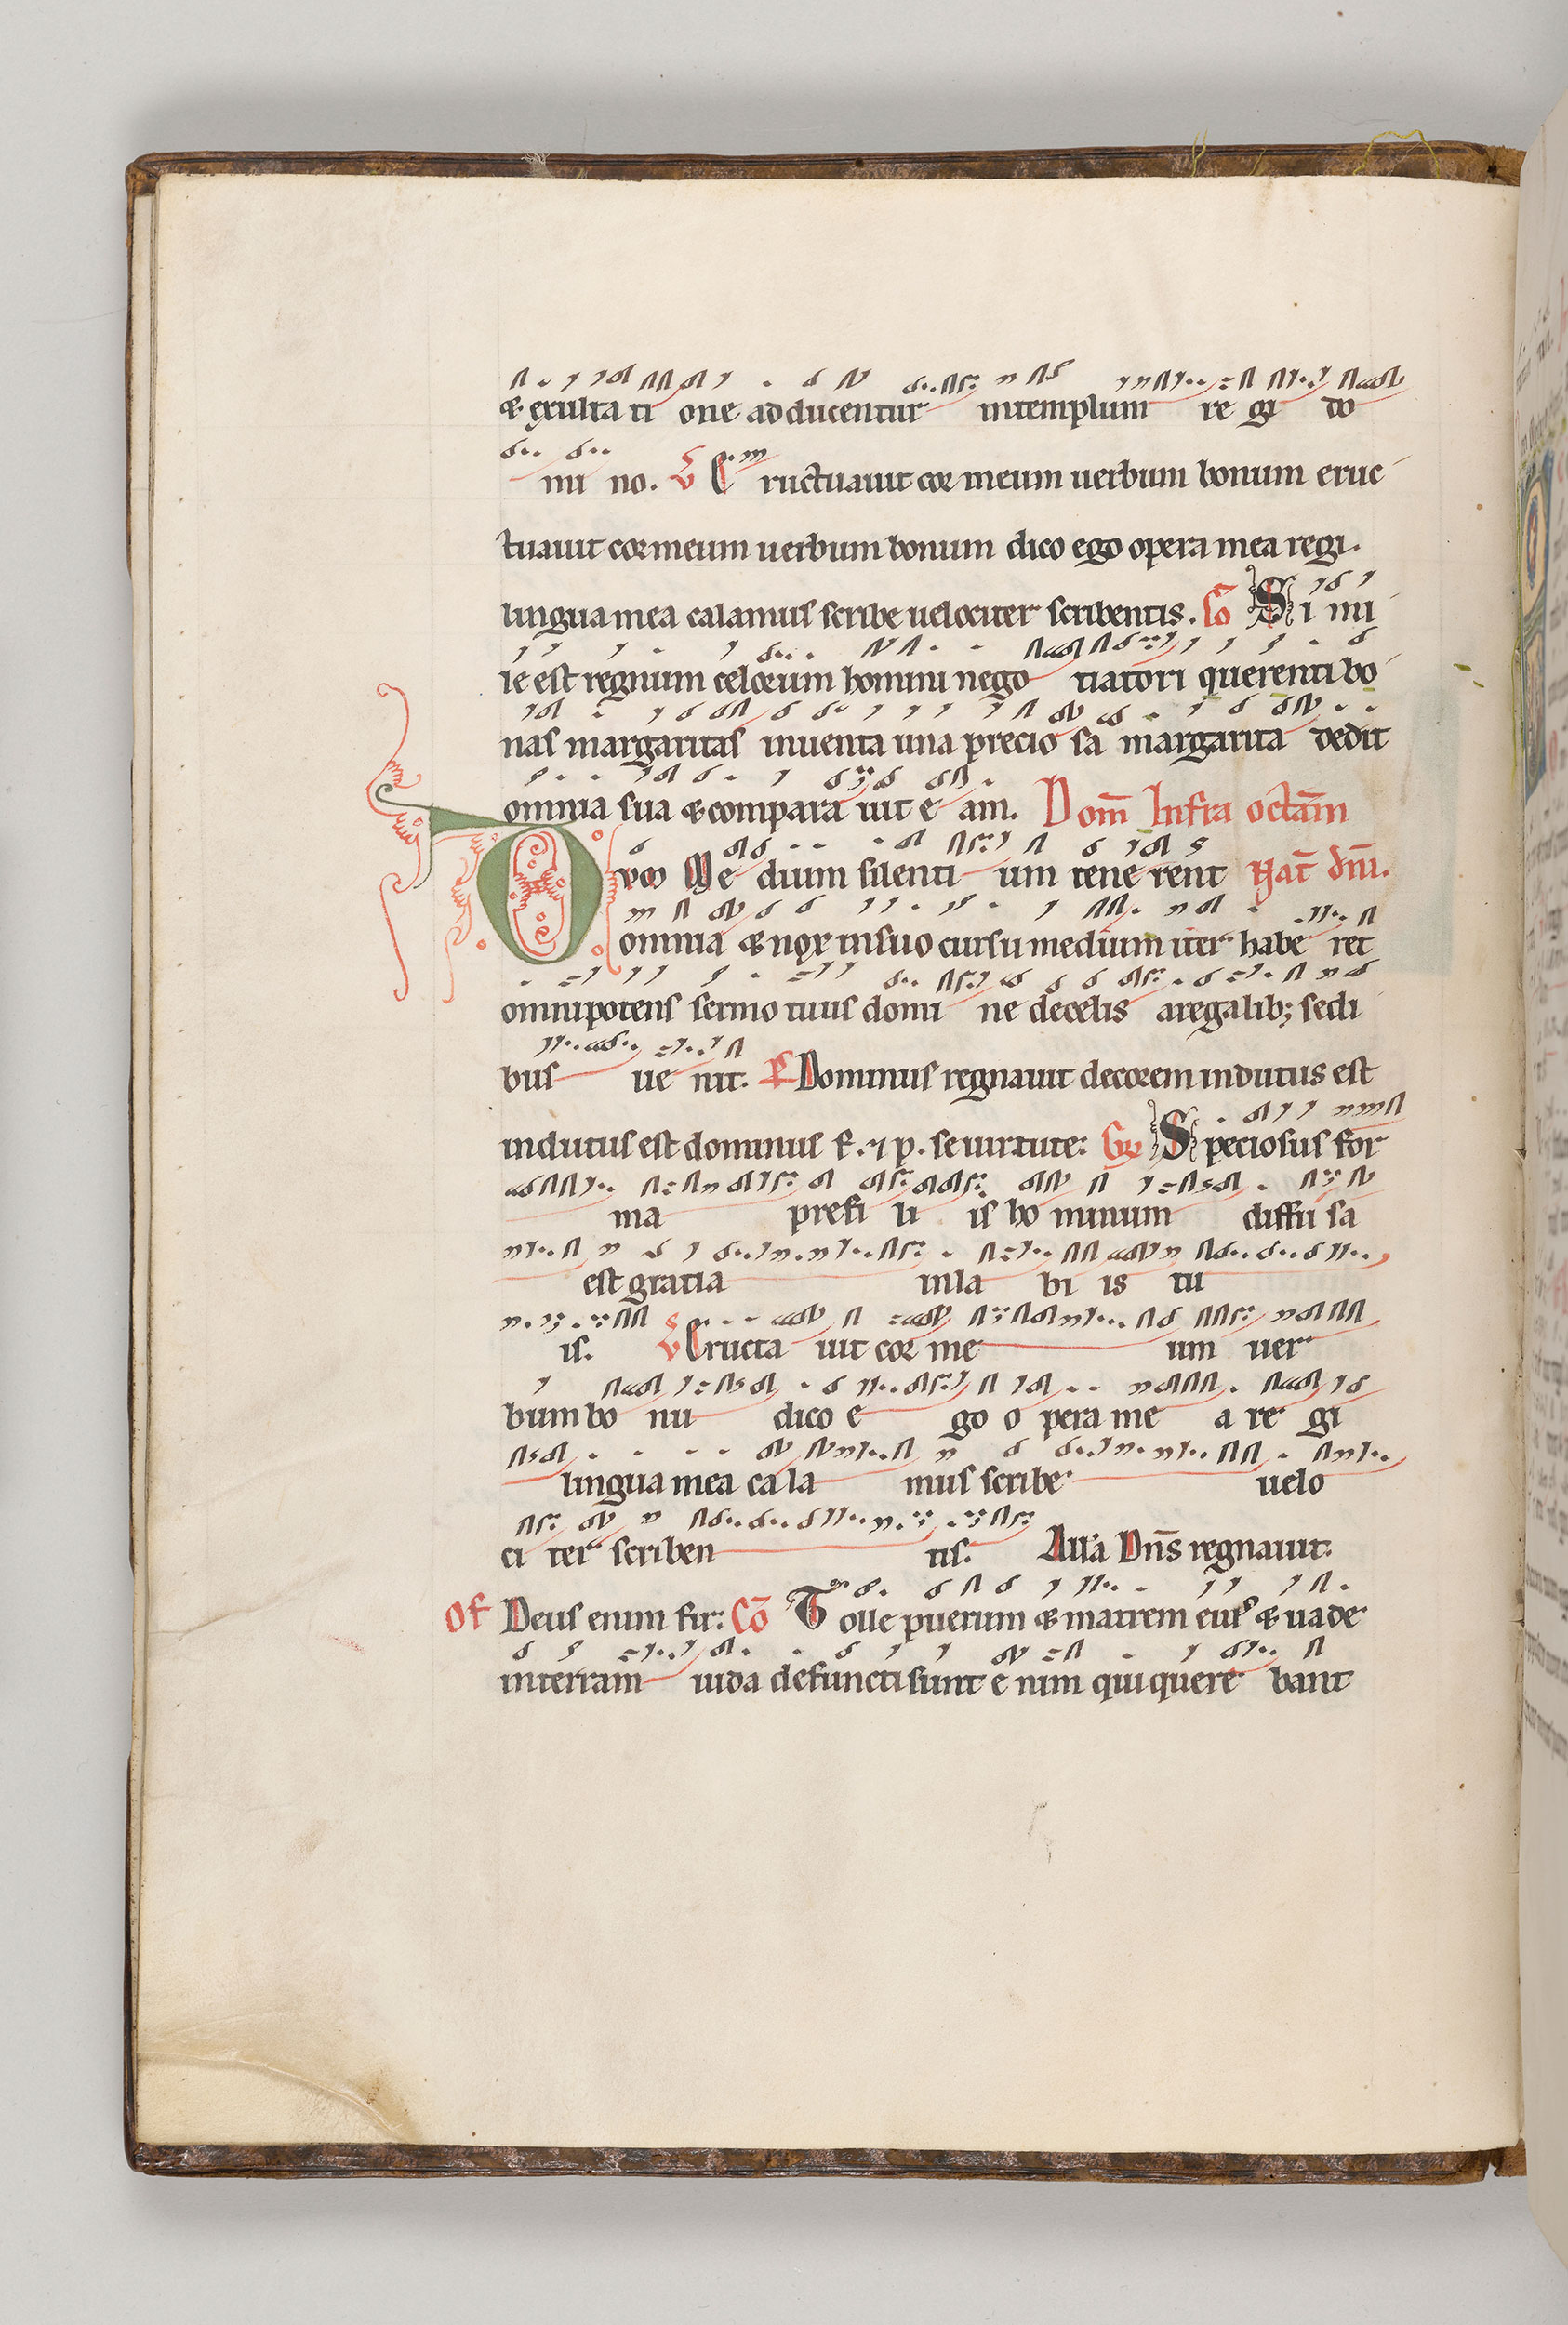 & exulta ti one adducentur intemplum re gi do
mi no. V Eructuauit cor meum uerbum bonum eruc
tuauit cor meum uerbum bonum dico ego opera mea regi.
lingua mea calamus scribe uelociter scribentis. Co Si mi
le est regnum celorum homini nego tiatori querenti bo
nas margaritas inuenta una precio sa margarita dedit
omnia sua & compara uit e am. Dom̄ Infra octām
Dvm Me dium silenti um tene rent Nat̄ dn̄i.
omnia & nox insuo cursu medium iter habe ret
omnipotens sermo tuus domi ne decelis aregalib; sedi
bus ue nit. P Dominus regnauit decorem indutus est
indutus est dominus f. ⁊ p. se uirtute: Gr Speciosus for
ma prefi li is ho minum diffu sa
est gratia inla bi is tu
is. V Eructa uit cor me um uer
bum bo nu dico e go o pera me a re gi
lingua mea ca la mus scribe uelo
ci ter scriben tis. Alla Dn̄s regnauit:
Of Deus enim fir: Cō Tolle puerum & matrem eius & uade
interram iuda defuncti sunt e nim qui quere bant